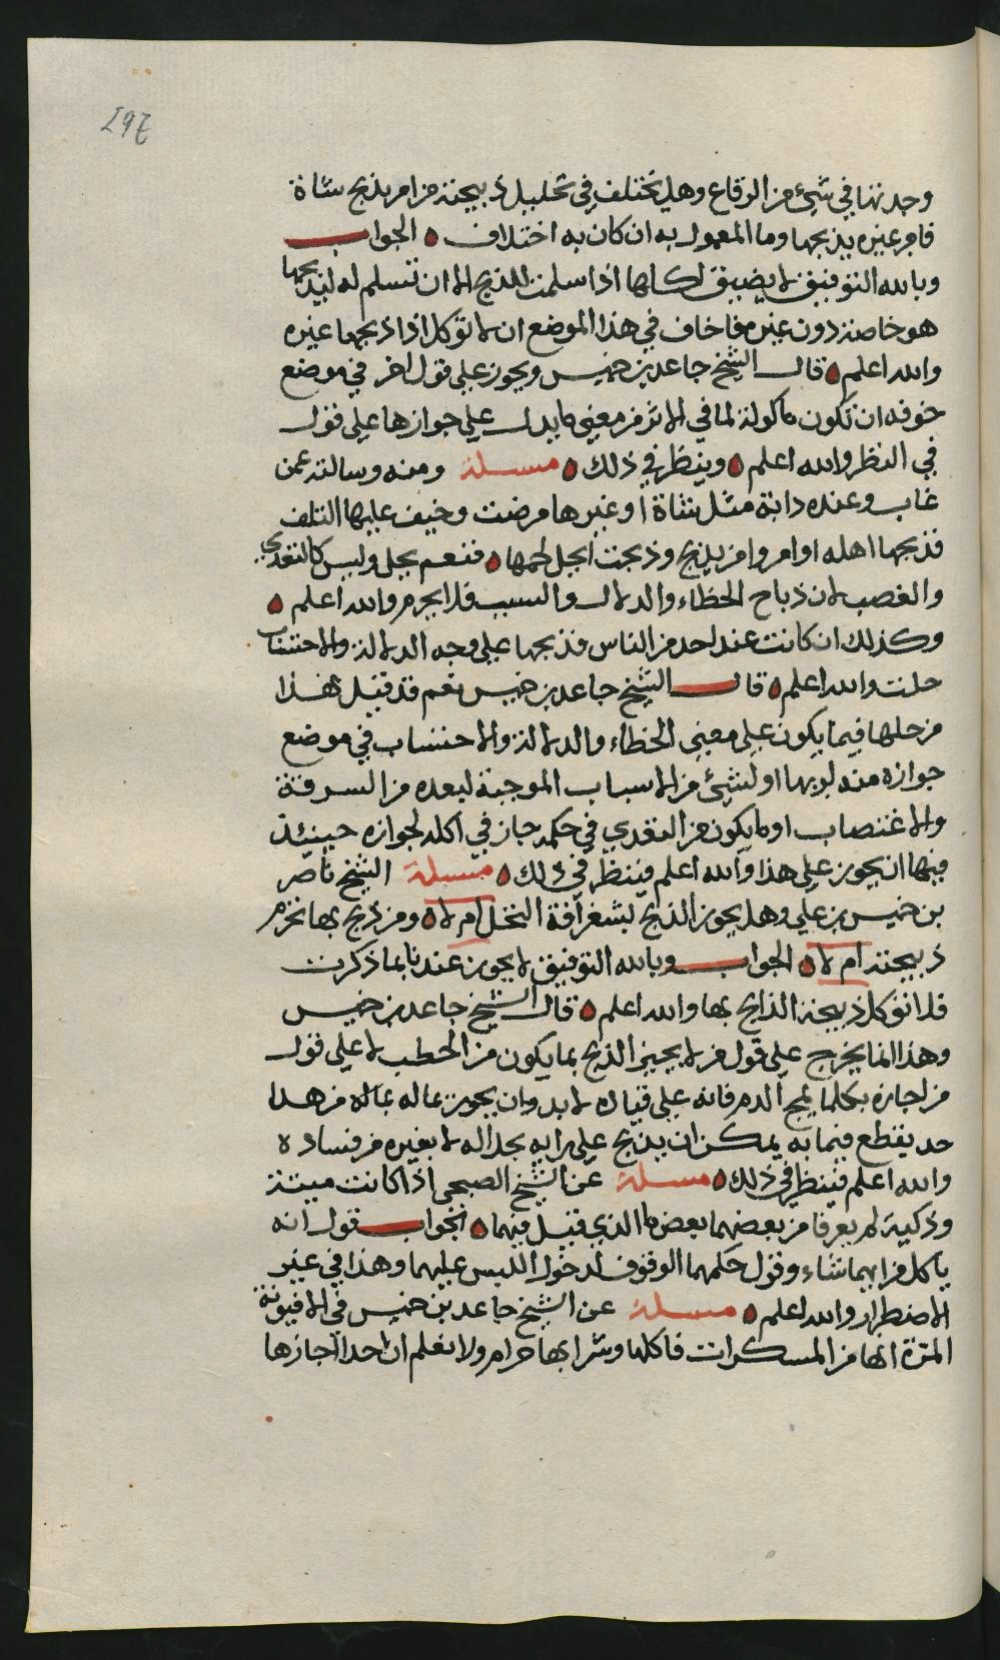 267
وجدتها في شيئ من الرقاع وهل يختلف في تحليل ذبيحته من امر بذبح شاة
فامر غيره يذبحها وما المعمول به ان كان به اختلاف الجواب
وبالله التوفيق لا يضيق اكلها اذا سلمت للذبح الا ان تسلم له ليذبحها
هو خاصة دون غيره فاخاف في هذا الموضع ان لا توكل اذا ذبحها غيره
والله اعلم قال الشيخ جاعد بن خميس ويجوز على قول اخر في موضع
خوفه ان تكون ماكولة لما في الاثر من معنى ما يدل على جوازها على قول
في النظر والله اعلم وينظر في ذلك مسـلة ومنه وسالته عمن
غاب وعنده دابة مثل شاة او غيرها مرضت وخيف عليها التلف
فذبحها اهله او امروا من يذبح وذبحت ايحل لحمها فنعم يحل وليس كالتعدي
والغصب لان ذباح الخطاء والدلال والسبب فلا يحرم والله اعلم
وكذلك ان كانت عند احد من الناس فذبحها على وجه الدلالة والاحتساب
حلت والله اعلم قال الشيخ جاعد بن خميس نعم قد قيل هذا
من حلها فيما يكون على معنى الخطاء والدلالة والاحتساب في موضع
جوازه منه لربها او لشيئ من الاسباب الموجبة لبعده من السرقة
والاغتصاب او ما يكون من التعدي في حكمه جاز في اكله لجوازه حينئذ
فيها ان يجوز على هذا والله اعلم فينظر في ذلك مسـلة الشيخ ناصر
بن خميس بن علي وهل يجوز الذبح بشغرافة النخل ام لا ومن ذبح بها تحرم
ذبيحته ام لا الجواب وبالله التوفيق لا يجوز عندنا بما ذكرت
فلا توكل ذبيحة الذابح بها والله اعلم قال الشيخ جاعد بن خميس
وهذا انما يخرج على قول من لا يجيز الذبح بما يكون من الحطب لا على قول
من اجازه بكلما يمج الدم فانه على قياده لا بد وان يجوز بماله بماله من هذا
حد يقطع فيما به يمكن ان يذبح على رايه بحد اله لا بغيره من فساده
والله اعلم فينظر في ذلك مسـلة عن الشيخ الصبحي اذا كانت ميتة
وذكية لم يعرفا من بعضهما بعض ما الذي قيل فيهما الجواب قول انه
ياكل من ايهما شاء وقول حكمهما الوقوف لدخول اللبس عليهما وهذا في غير
الاضطرار والله اعلم مسـلة عن الشيخ جاعد بن خميس في الافيونة
المترة انها من المسكرات فاكلها وشرابها حرام ولا نعلم ان احدا اجازها